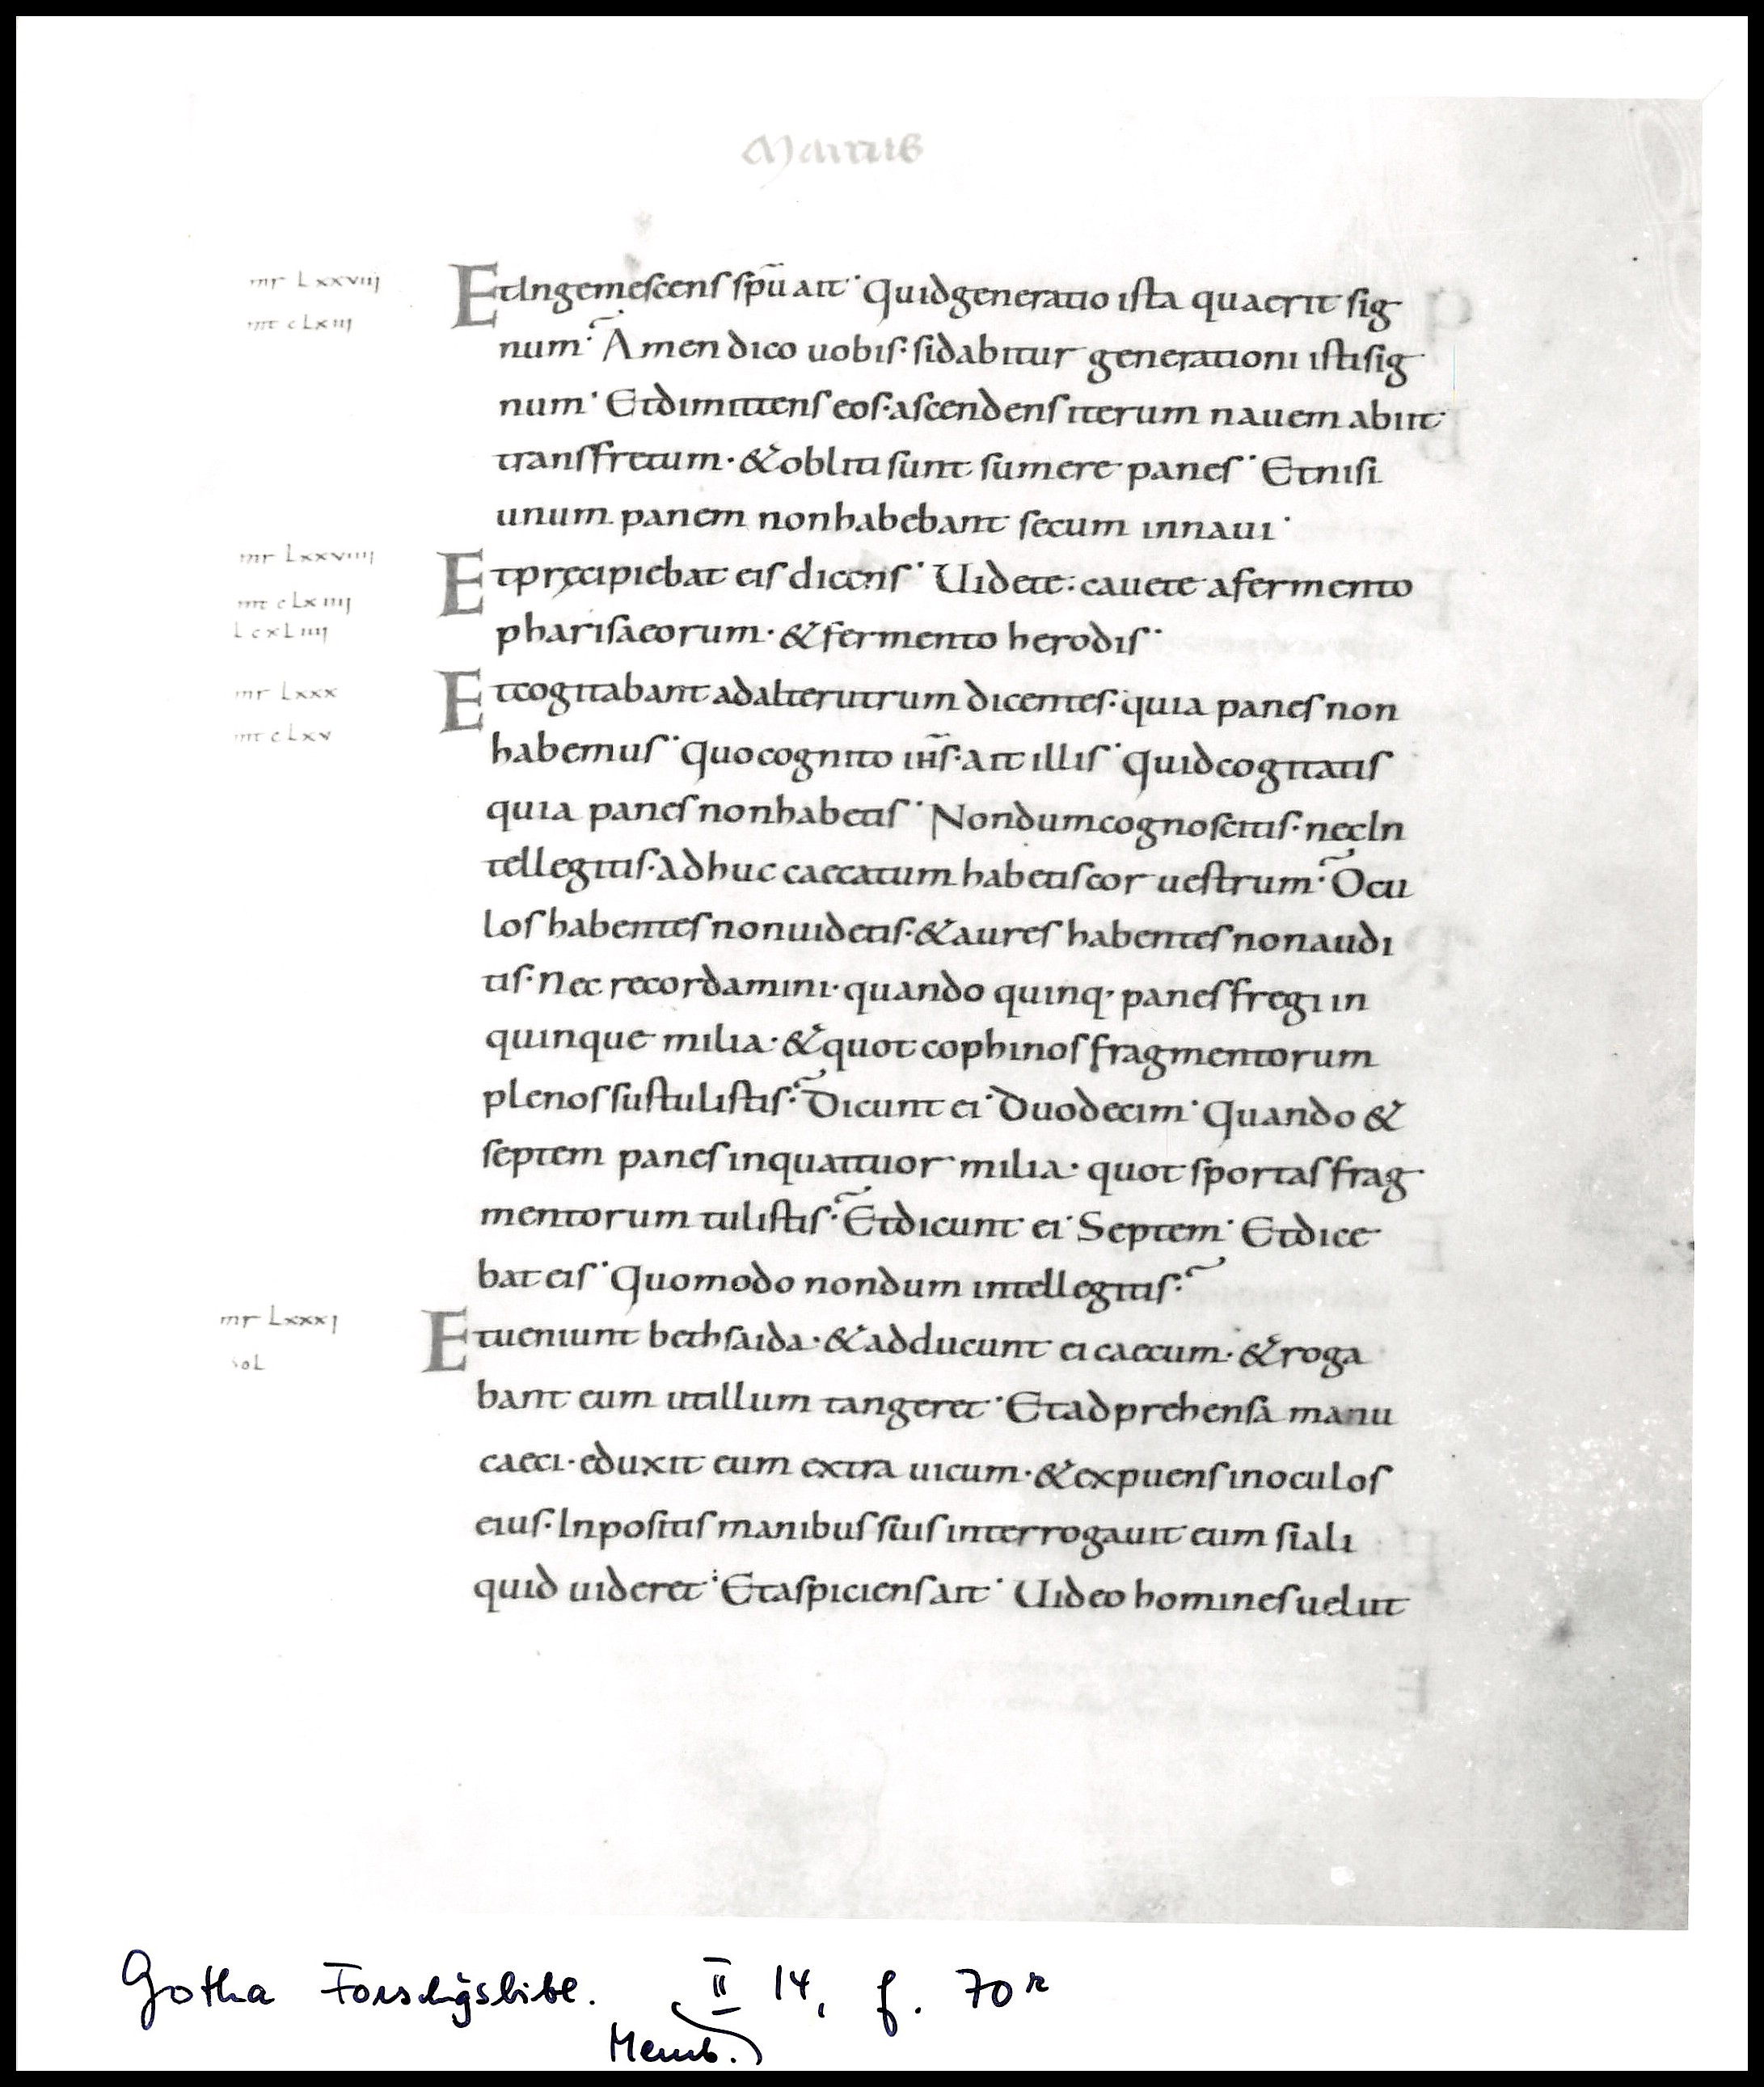 Marcus
mr Lxxviij
mt cLxiij
EtIngemescens spū ait· Quidgeneratio ista quaerit sig
num· Amen dico uobis· sidabitur generationi istisig
num· Etdimittens eos· ascendens iterum nauem abiit·
transfretum· & obliti sunt sumere panes· Etnisi
unum panem nonhabebant secum innaui·
mr Lxxviiij
mt cLxiiij
L cxLiiij
Etpręcipiebat eis dicens· Uidete: cauete afermento
pharisaeorum· & fermento herodis·
mr Lxxx
mt cLxv
Etcogitabant adalterutrum dicentes· quia panes non
habemus· Quocognito ihs̄· ait illis· Quidcogitatis
quia panes nonhabetis· Nondumcognoscitis· necIn
tellegitis· adhuc caecatum habetiscor uestrum· Ocu
los habentes nonuidetis· & aures habentes nonaudi
tis· Nec recordamini· quando quinq· panes fregi in
quinque milia· & quot cophinos fragmentorum
plenos sustulistis· Dicunt ei· Duodecim· Quando &
septem panes inquattuor milia· quot sportas frag
mentorum tulistis· Etdicunt ei· Septem· Etdice
bat eis· Quomodo nondum intellegitis·
mr Lxxxj
soL
Etueniunt bethsaida· & adducunt ei caecum· & roga
bant eum utillum tangeret· Etadprehensa manu
caeci· eduxit eum extra uicum· & expuens inoculos
eius· Inpositis manibus suis interrogauit eum siali
quid uideret· Etaspiciens ait· Uideo homines uelut
Gotha Forschgsbibl. II 14, f. 70r
Memb.